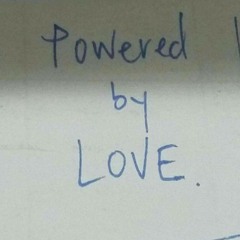 Powered
by
LOVE.